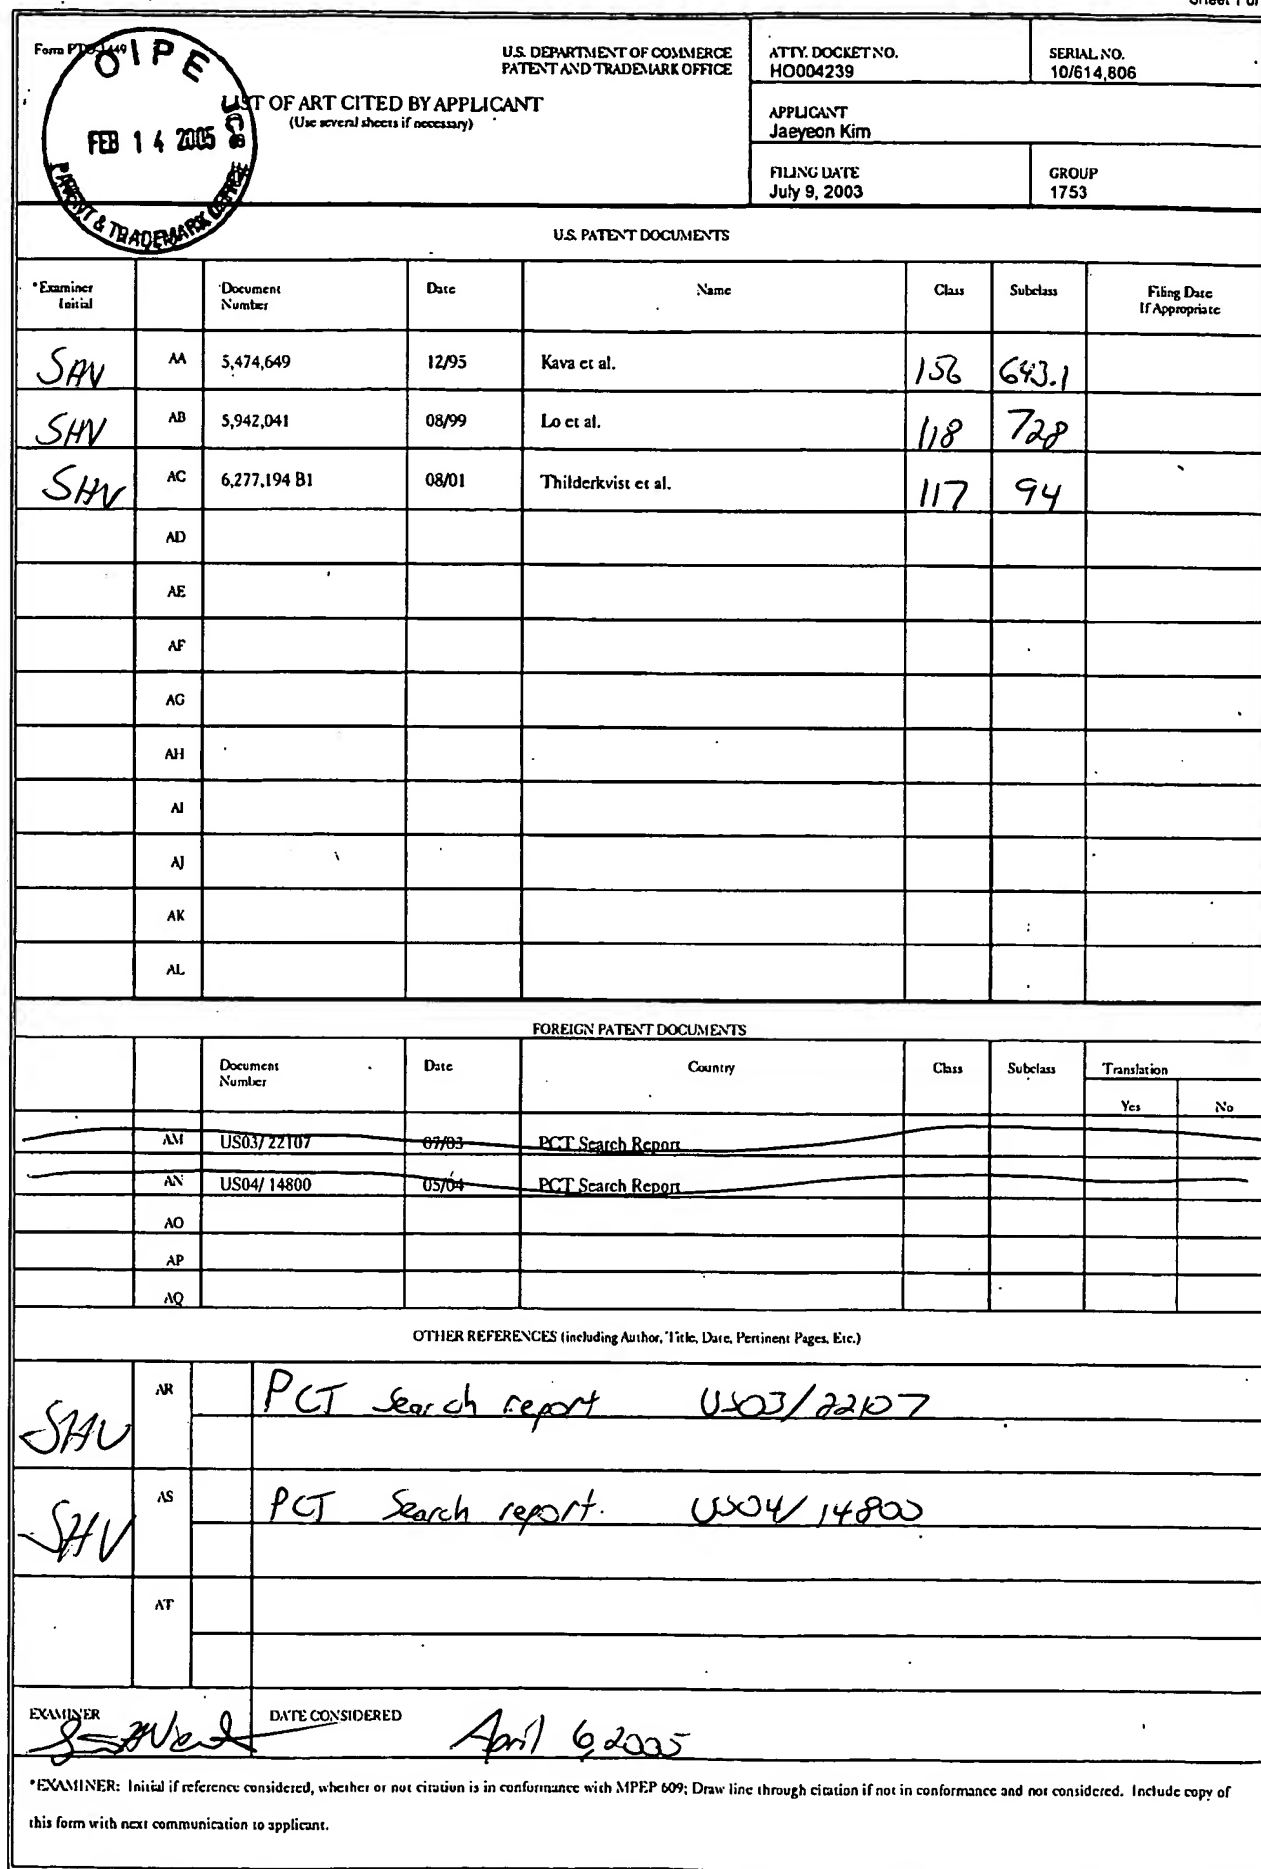 Sheet 1 of
Form PTO-1449
U.S. DEPARTMENT OF COMMERCE
PATENT AND TRADEMARK OFFICE
ATTY. DOCKET NO.
HO004239
SERIAL NO.
10/614,806
OIPE
FEB 14 2005
PATENT & TRADEMARK OFFICE
LIST OF ART CITED BY APPLICANT
(Use several sheets if necessary)
APPLICANT
Jaeyeon Kim
FILING DATE
July 9, 2003
GROUP
1753
U.S. PATENT DOCUMENTS
*Examiner Initial Document Number Date Name Class Subclass Filing Date If Appropriate
SHV AA 5,474,649 12/95 Kava et al. 156 643.1
SHV AB 5,942,041 08/99 Lo et al. 118 728
SHV AC 6,277,194 B1 08/01 Thilderkvist et al. 117 94
AD
AE
AF
AG
AH
AI
AJ
AK
AL
FOREIGN PATENT DOCUMENTS
Document Number Date Country Class Subclass Translation
Yes No
AM US03/22107 07/03 PCT Search Report
AN US04/ 14800 05/04 PCT Search Report
AO
AP
AQ
OTHER REFERENCES (including Author, Title, Date, Pertinent Pages, Etc.)
SHV AR PCT Search report US03/22107
SHV AS PCT Search report. US04/14800
AT
EXAMINER DATE CONSIDERED April 6, 2005
*EXAMINER: Initial if reference considered, whether or not citation is in conformance with MPEP 609; Draw line through citation if not in conformance and not considered. Include copy of
this form with next communication to applicant.